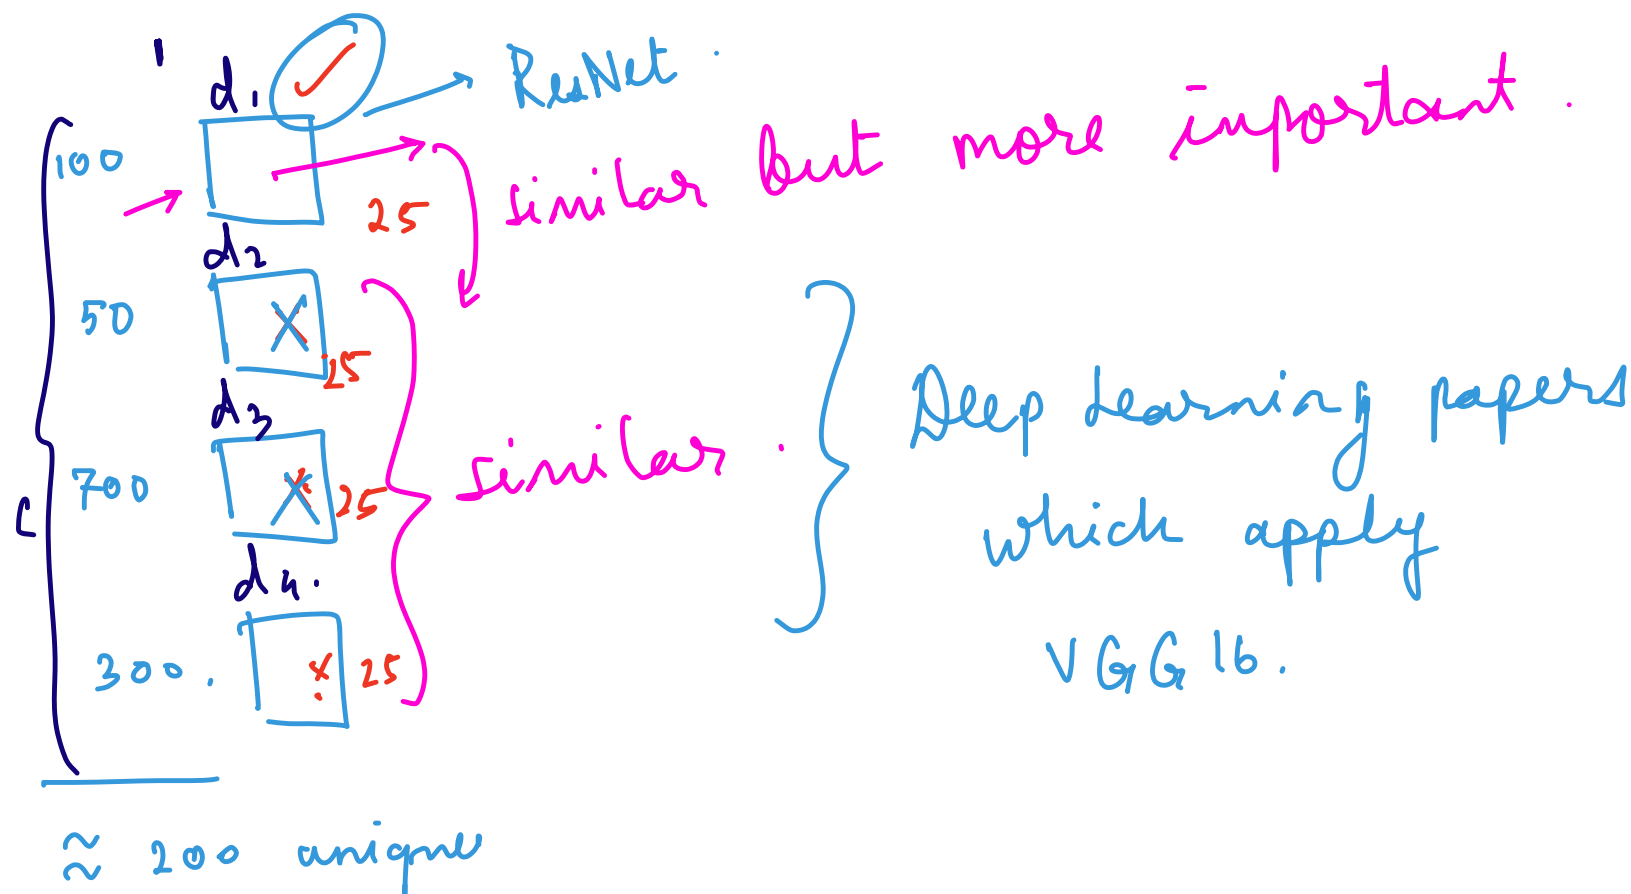 d1 ✓ ResNet.
100
25 similar but more important.
d2
50
25
d3
700 25 similar.
Deep Learning papers
which apply
VGG16.
d4.
300. 25
≈ 200 unique